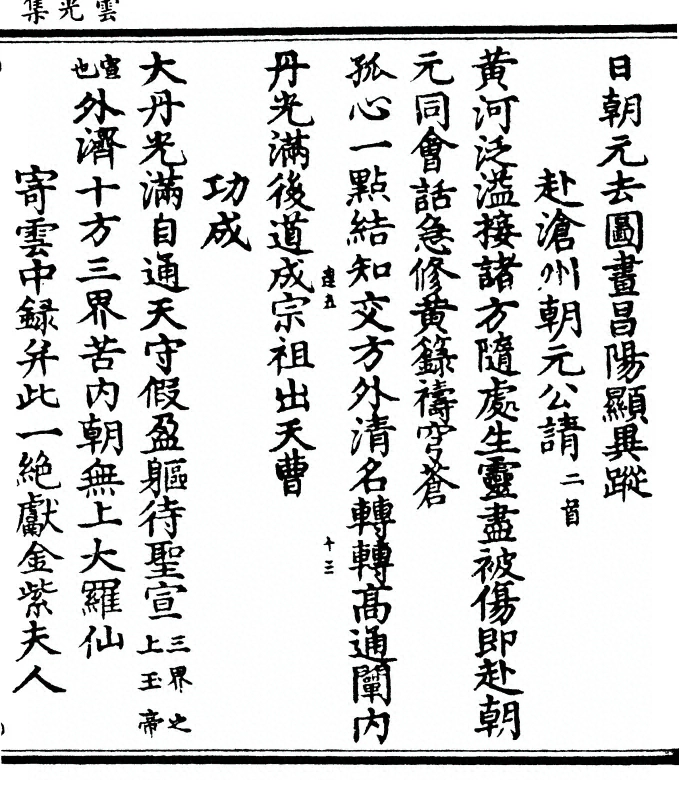 雲光集
日朝元去圖畫昌陽顯異蹤
赴滄州朝元公請二首
黃河泛溢接諸方隨處生靈盡被傷即赴朝
元同會話急修黃籙禱穹蒼
孤心一點結知交方外清名轉轉高通闡內
達五
十三
丹光滿後道成宗祖出天曹
功成
大丹光滿自通天守假盈軀待聖宣三界之上玉帝
宣也外濟十方三界苦內朝無上大羅仙
寄雲中録并此一絶獻金紫夫人